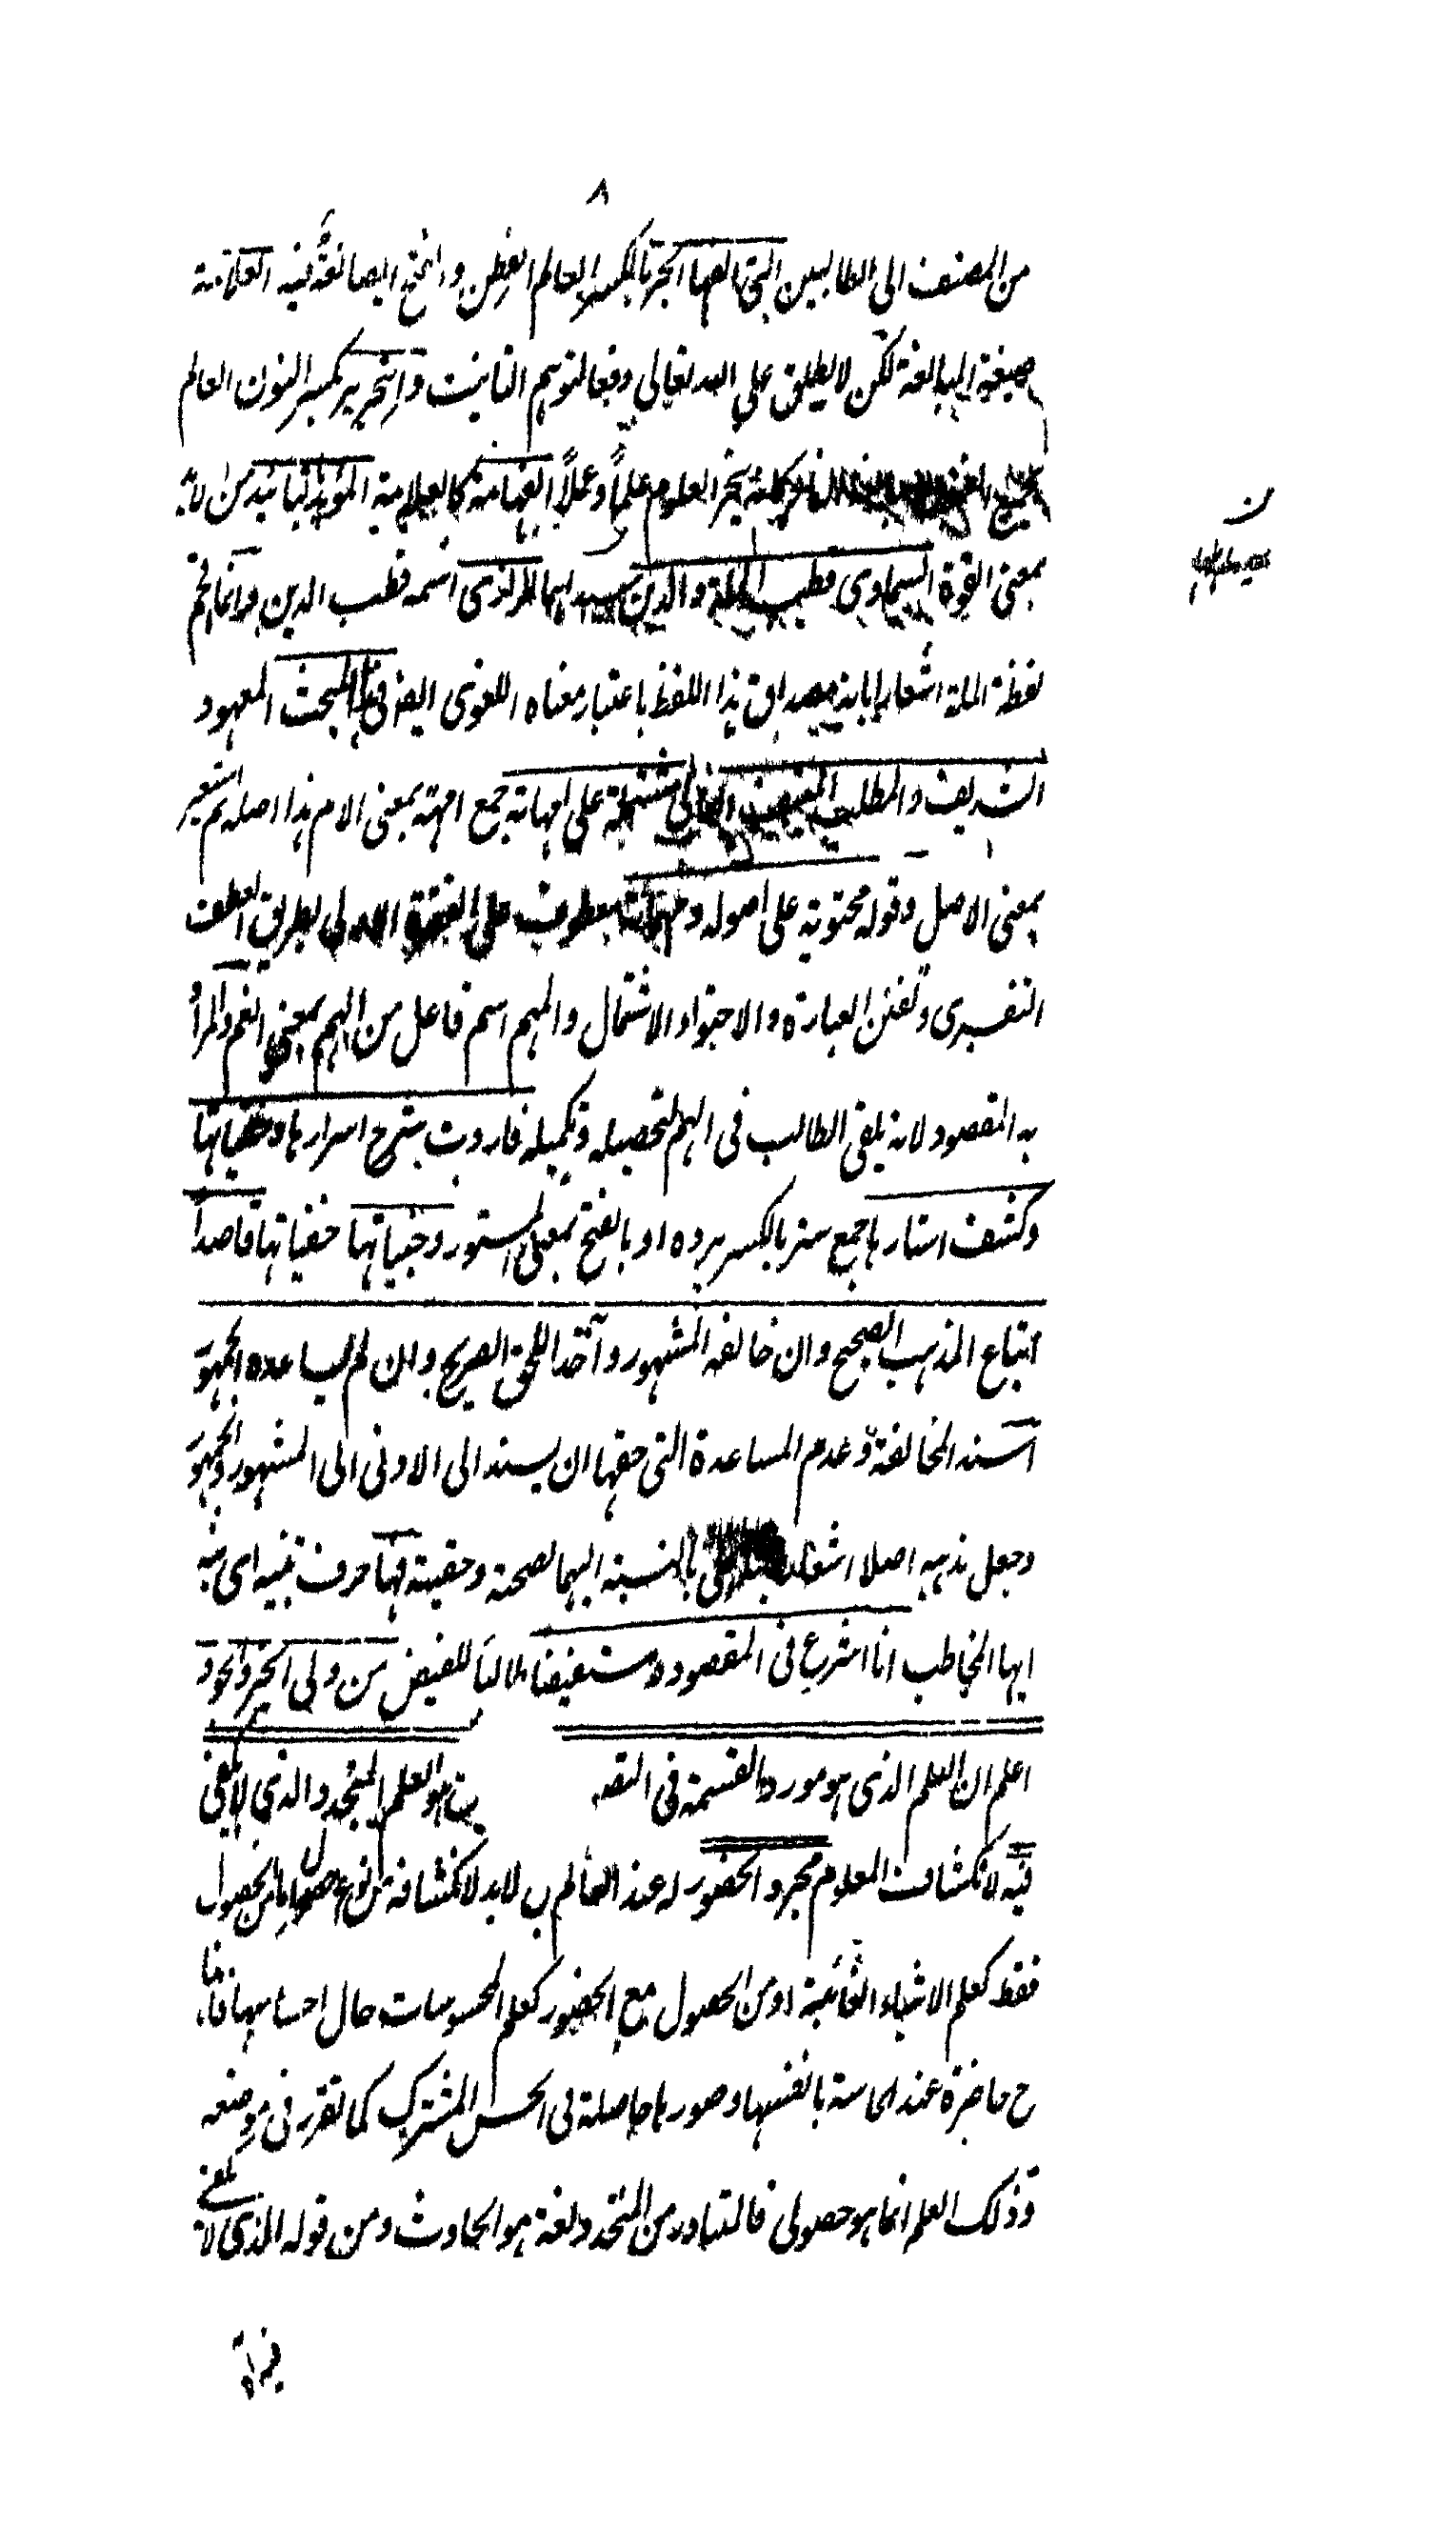 ٨
من المصنف الى الطالبين التى الفها الحبر بالكسر العالم الفطن و الفتح ايضا لغة فيه العلامة
صيغة المبالغة لكن لا يطلق على الله تعالى دفعا لتوهم التانيث و النحرير بكسر النون العالم
العلوم علماً وعملاً الفهامة كالعلامة المؤيد بتائيد من
بمعنى القوة السماوى قطب الملة والدين الرازى اسمه قطب الدين وانما
لفظة الملة اشعارا بانه مصداق هذا اللفظ باعتبار معناه اللغوى ايضا فى المبحث المعهود
الشريف والمطلب المشتملة على امهاته جمع امهة بمعنى الام هذا اصله ثم استعير
بمعنى الاصل وقوله محتوية على اصوله ومهماته معطوف على الفقرة الاولى بطريق العطف
التفسيرى وتفنن العبارة والاحتواء الاشتمال والمهم اسم فاعل من الهم بمعنى الغم والمراد
به المقصود لانه يلقى الطالب فى الهم لتحصيله وتكميله فاردت بشرح اسرارها
وكشف استارها جمع ستر بالكسر پرده او بالفتح بمعنى المستور وخبياتها خفياتها قاصداً
اتباع المذهب الصحيح وان خالفه المشهور وآخذا للحق الصريح وان لم يساعده الجمهور
اسند المخالفة وعدم المساعدة التى حقها ان يسند الى الادنى الى المشهور والجمهور
وجعل مذهبه اصلا اشعارا بالنسبة اليهما لصحته وحقيته فها حرف تنبيه اى
ايها المخاطب انا اشرع فى المقصود مستفيضا طالبا للفيض من ولى الخير والجود
اعلم ان العلم الذى هو مورد القسمة فى هو العلم المتجدد والذى لا يكفى
فيه لانكشاف المعلوم مجرد الحضور له عند العالم بل لابد لانكشافه من
فقط كعلم الاشياء الغائبة او من الحصول مع الحضور كعلم المحسوسات حال احساسها فانها
ح حاضرة عند الحاسة بانفسها وصورها حاصلة فى الحس المشترك كما تقرر فى موضعه
وذلك العلم انما هو حصولى فالمتبادر من المتجدد لغة هو الحادث ومن قوله الذى لا يكفى
فيه